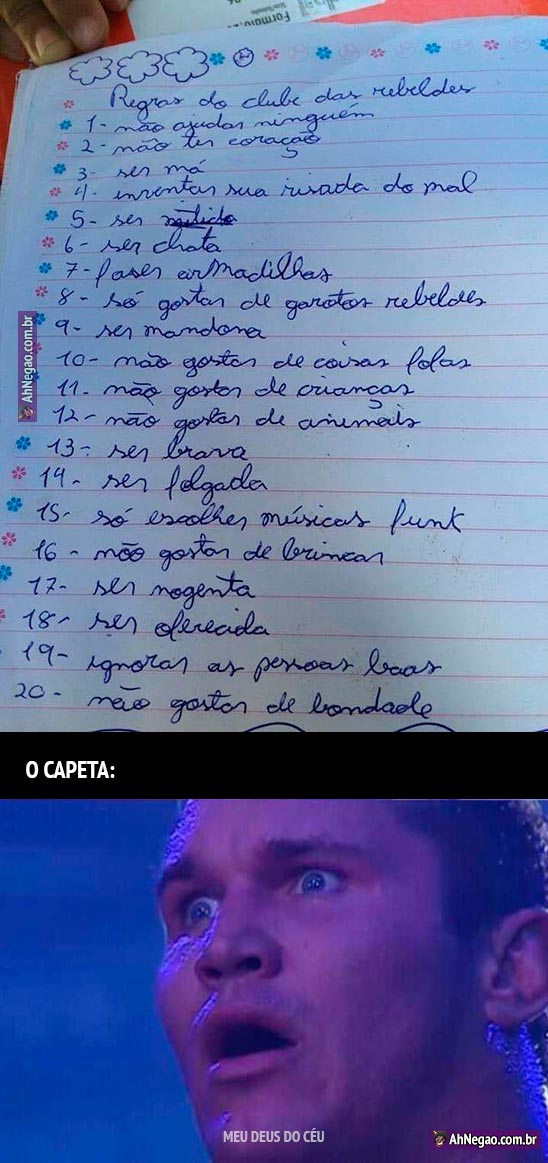 Formulá
Regras do clube das rebeldes
1- não ajudar ninguém
2- não ter coração
3- ser má
4- inventar sua risada do mal
5- ser
6- ser chata
7- faser armadilhas
8- só gostar de garotos rebeldes
9- ser mandona
10- não gostar de coisas fofas
11- não gostar de crianças
12- não gostar de animais
13- ser brava
14- ser folgada
15- só escolher músicas funk
16- não gostar de brincar
17- ser nogenta
18- ser oferecida
19- ignorar as pessoas boas
20- não gostar de bondade
AhNegao.com.br
O CAPETA:
MEU DEUS DO CÉU
AhNegao.com.br